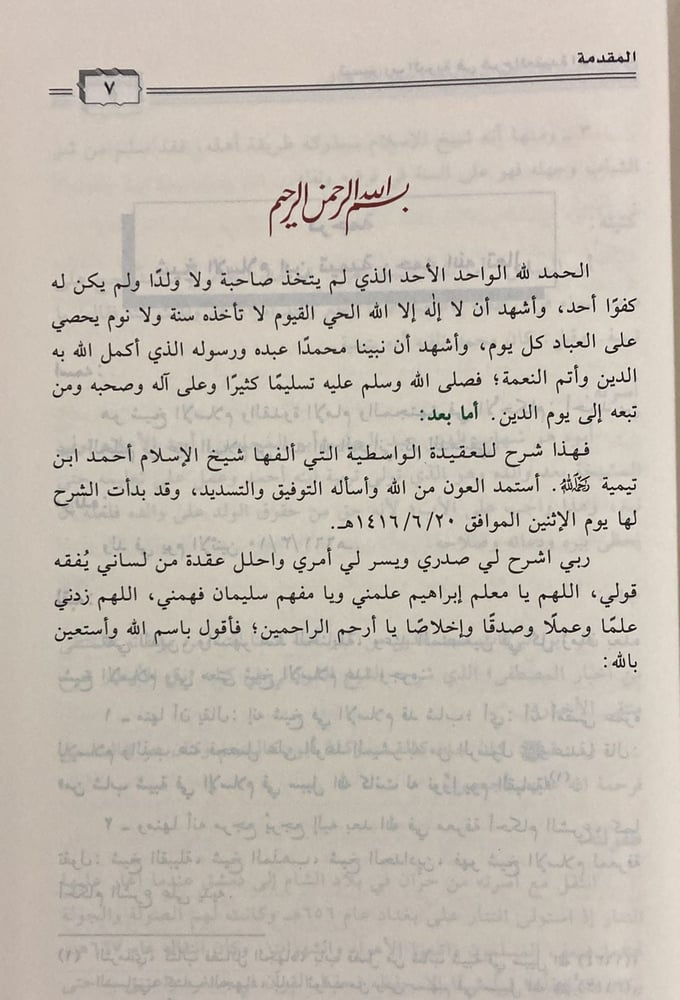 المقدمة
٧
بسم الله الرحمن الرحيم
الحمد لله الواحد الأحد الذي لم يتخذ صاحبة ولا ولدًا ولم يكن له
كفوًا أحد، وأشهد أن لا إلٰه إلا الله الحي القيوم لا تأخذه سنة ولا نوم يحصي
على العباد كل يوم، وأشهد أن نبينا محمدًا عبده ورسوله الذي أكمل الله به
الدين وأتم النعمة؛ فصلى الله وسلم عليه تسليمًا كثيرًا وعلى آله وصحبه ومن
تبعه إلى يوم الدين. أما بعد:
فهذا شرح للعقيدة الواسطية التي ألفها شيخ الإسلام أحمد ابن
تيمية رحمه الله. أستمد العون من الله وأسأله التوفيق والتسديد، وقد بدأت الشرح
لها يوم الإثنين الموافق ١٤١٦/٦/٢٠هـ.
ربي اشرح لي صدري ويسر لي أمري واحلل عقدة من لساني يُفقه
قولي، اللهم يا معلم إبراهيم علمني ويا مفهم سليمان فهمني، اللهم زدني
علمًا وعملًا وصدقًا وإخلاصًا يا أرحم الراحمين؛ فأقول باسم الله وأستعين
بالله: